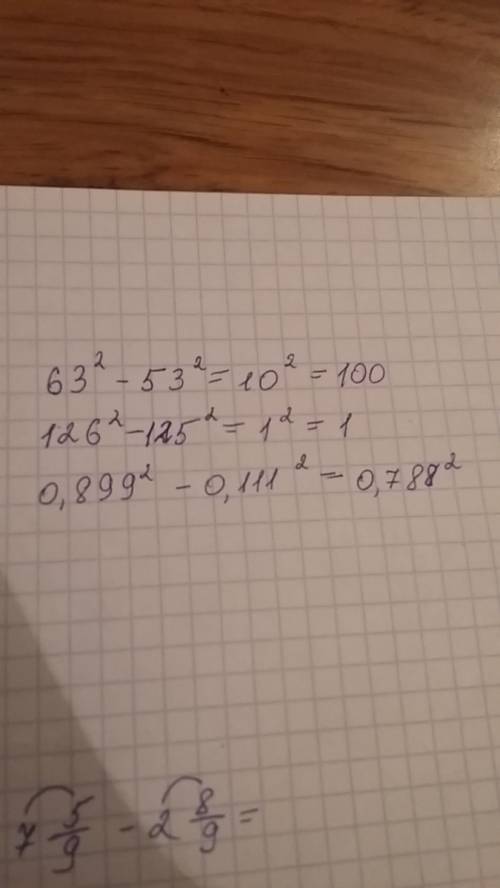 63² - 53² = 10² = 100
126² - 125² = 1² = 1
0,899² - 0,111² = 0,788²
7 5/9 - 2 8/9 =